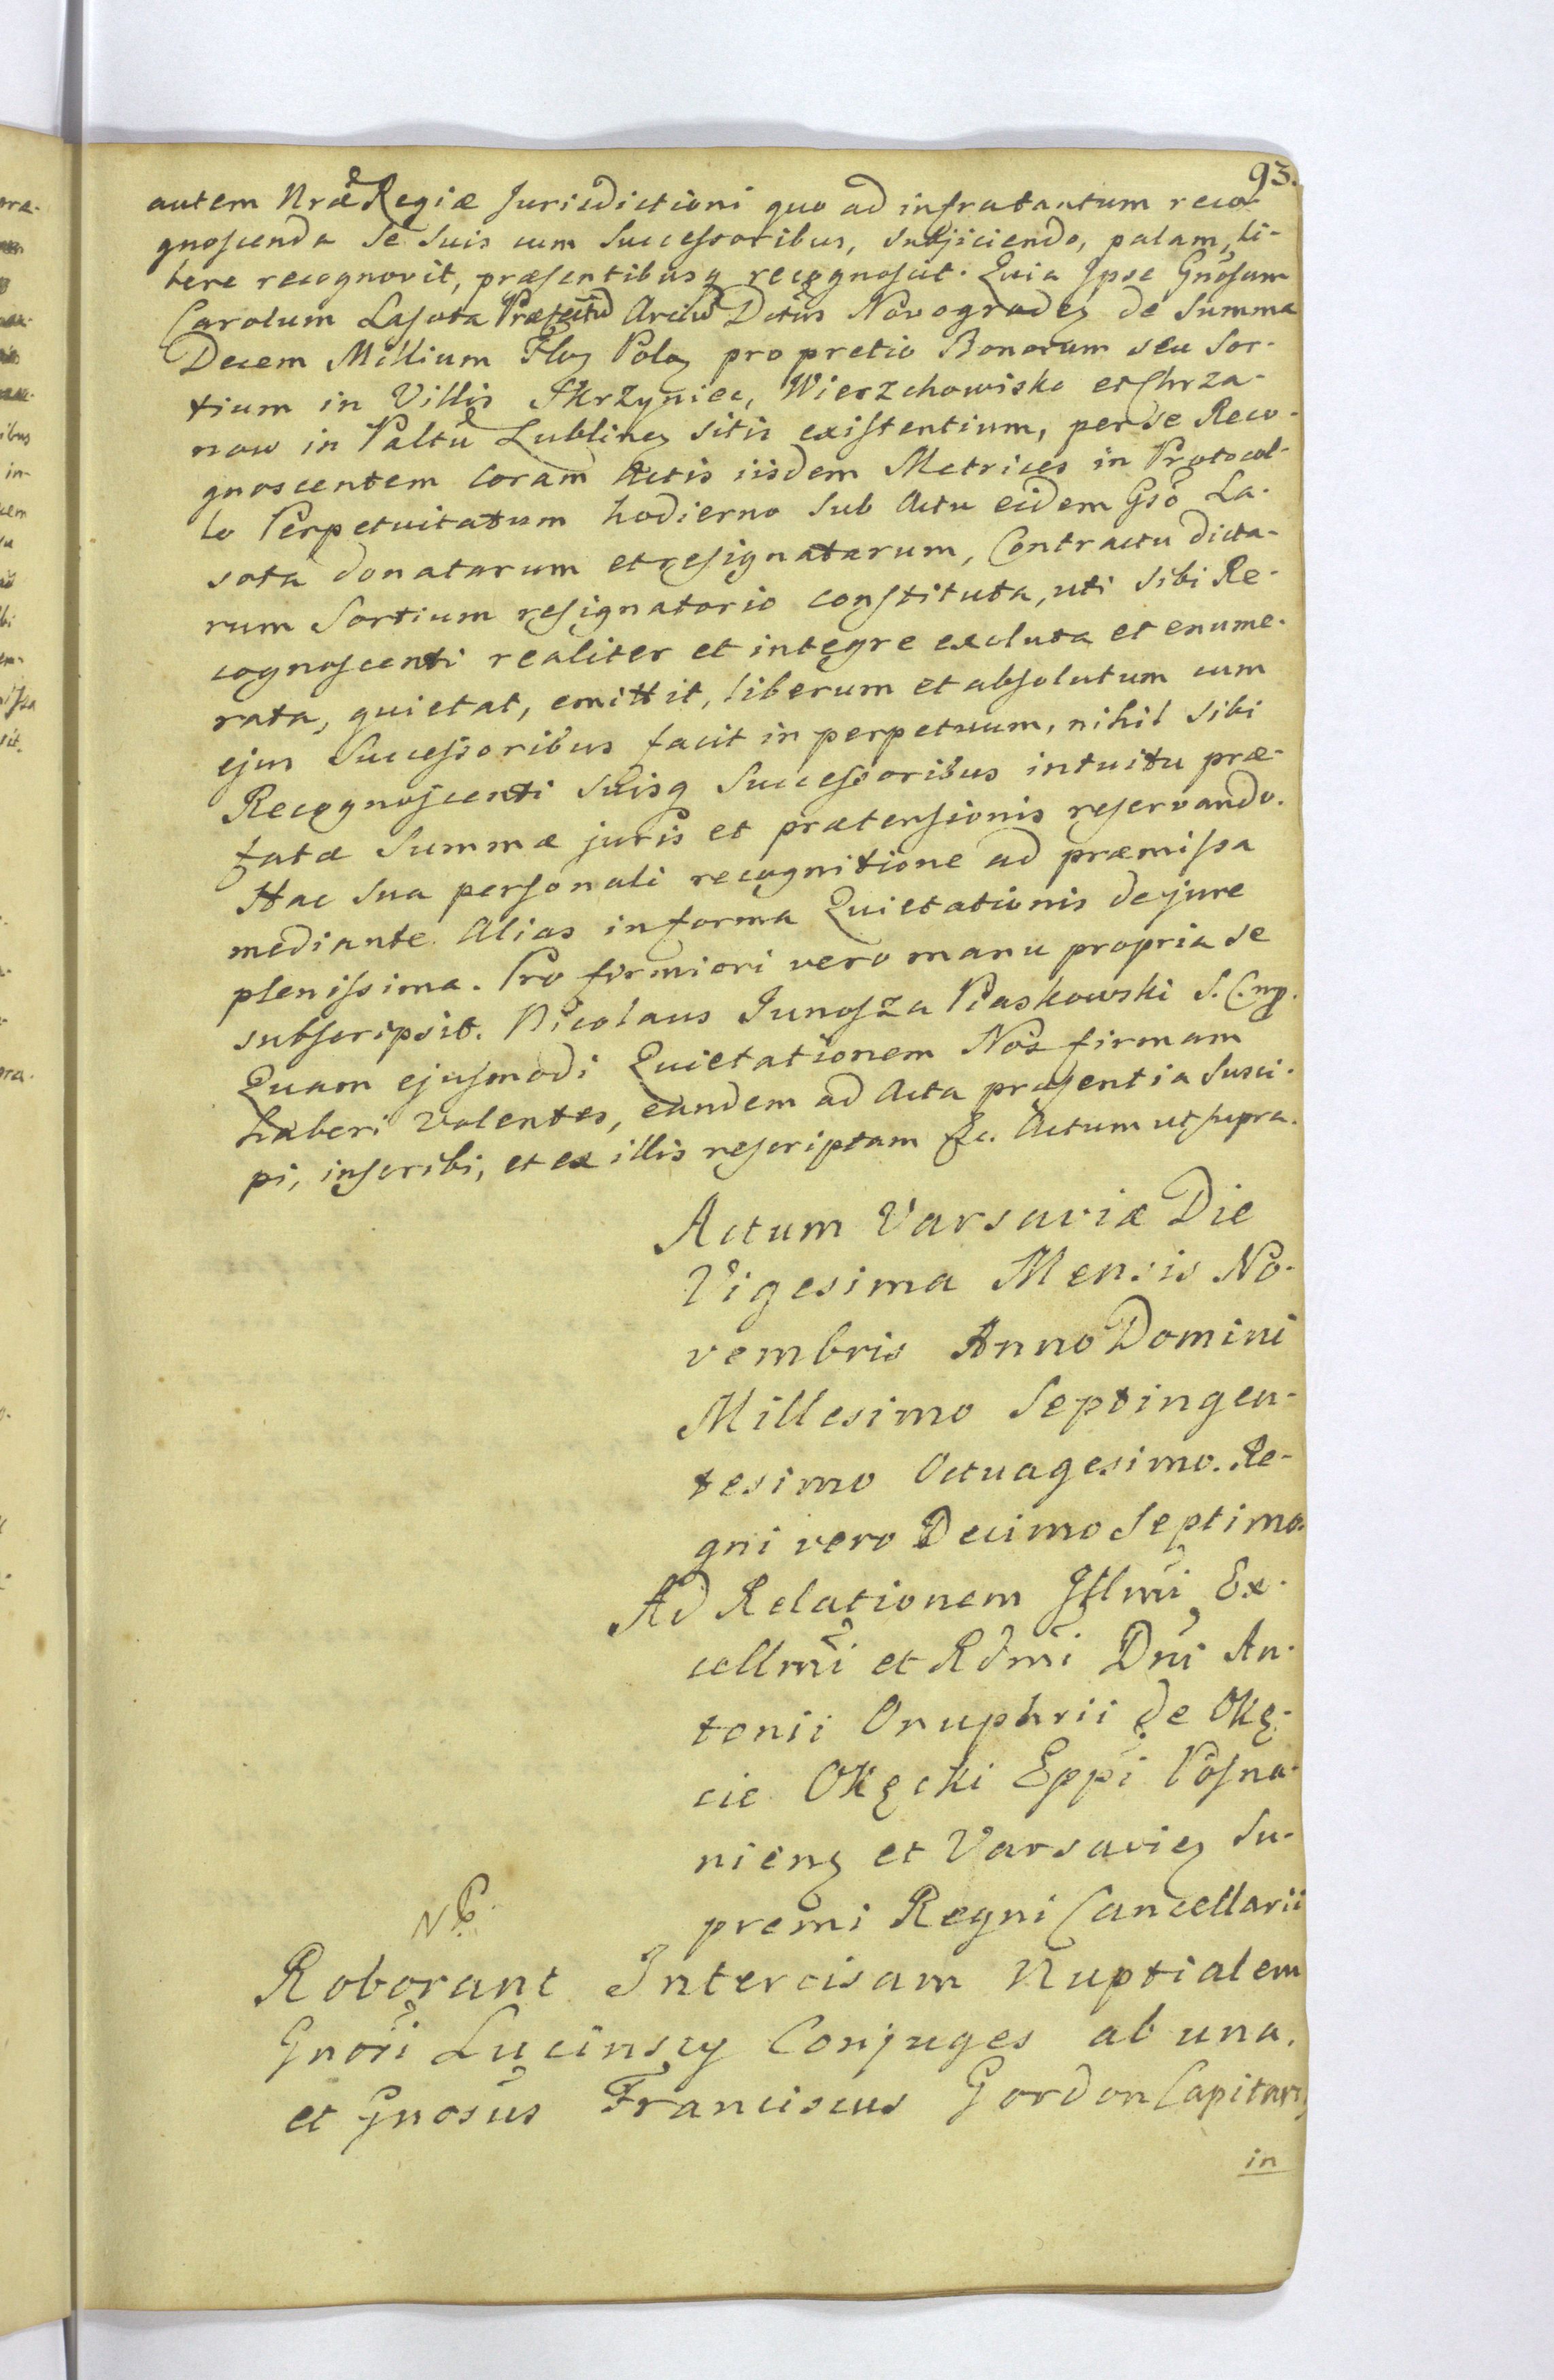 93.
autem Nrae Regiæ Jurisdictioni quo ad infrataxtum reco-
gnoscenda se suis cum Successoribus, subjiciendo, palam, li-
bere recognovit, præsentibusq recognoscit. Quia Ipse Gnosum
Carolum Lasota Præfectũ Arciũ Dctũs Novogrodeȝ de Summa
Decem Millium Floȝ Poloȝ pro pretio Bonorum seu Sor-
tium in Villis Skrzyniec, Wierzchowiska et Chrza-
now in Paltũ Lublineȝ sitis existentium, per se Reco-
gnoscentem Coram Actis iisdem Metrices in Protocol-
lo Perpetuitatum hodierno sub Actu eidem Gsõ La-
sota donatarum et resignatarum, Contractu dicta-
rum Sortium resignatorio constituta, uti sibi Re-
cognoscenti realiter et integre exoluta et enume-
rata, quietat, emittit, liberum et absolutum cum
ejus Successoribus facit in perpetuum, nihil sibi
Recognoscenti suisq Successoribus intuitu præ-
fatæ Summæ juris et prætensionis reservando.
Hac sua personali recognitione ad præmissa
mediante. Alias in forma Quietationis de jure
plenissima. Pro firmiori vero manu propria se
subscripsit. Nicolaus Junosza Piaskowski S. C. mp.
Quam ejusmodi Quietationem Nos firmam
haberi volentes, eandem ad Acta præsentia susci-
pi, inscribi, et ex illis rescriptam &c. Actum ut supra.
Actum Varsaviæ Die
Vigesima Mensis No-
vembris Anno Domini
Millesimo Septingen-
tesimo Octuagesimo. Re-
gni vero Decimo Septimo.
Ad Relationem Illmi Ex-
cellmi et Rdmi Dni An-
tonii Onuphrii de Okę-
cie Okęcki Eppi Posna-
nienȝ et Varsavieȝ Su-
premi Regni Cancellarii
NB.
Roborant Intercisam Nuptialem
Gnosi Lucinscy Conjuges ab una.
et Gnosus Franciscus Gordon Capitan9
in